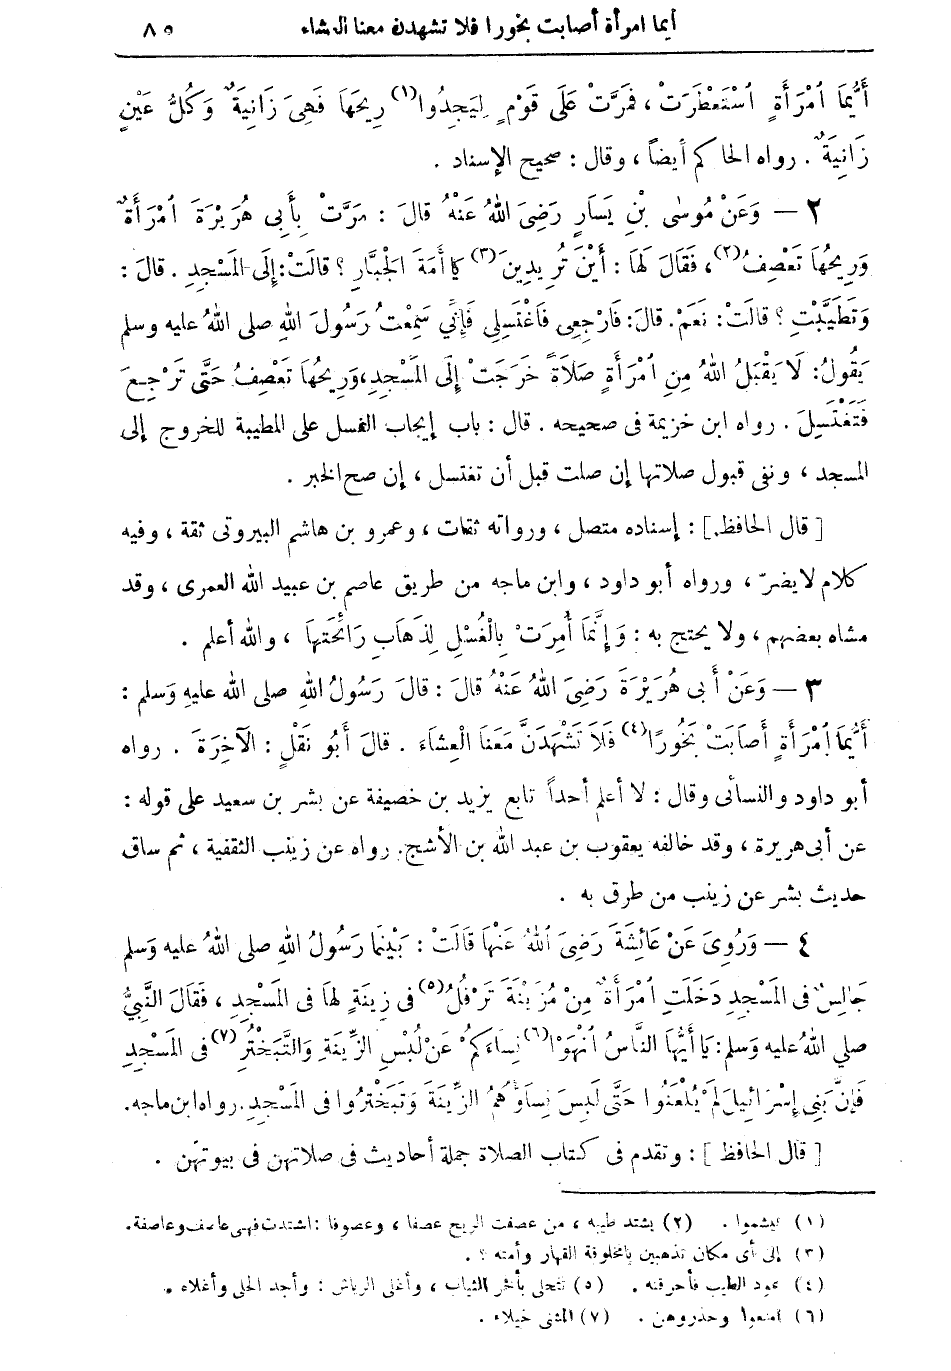 أيما امرأة أصابت بخورا فلا تشهدن معنا العشاء ٨٥
أَيُّمَا ٱمْرَأَةٍ ٱسْتَعْطَرَتْ ، فَمَرَّتْ عَلَى قَوْمٍ لِيَجِدُوا(١) رِيحَهَا فَهِىَ زَانِيَةٌ وَكُلُّ عَيْنٍ
زَانِيَةٌ . رواه الحاكم أيضاً ، وقال : صحيح الإسناد .
٢ — وَعَنْ مُوسَى بْنِ يَسَارٍ رَضِىَ اللهُ عَنْهُ قَالَ : مَرَّتْ بِأَبِى هُرَيْرَةَ ٱمْرَأَةٌ
وَرِيحُهَا تَعْصِفُ(٢) ، فَقَالَ لَهَا : أَيْنَ تُرِيدِينَ(٣) يَا أَمَةَ الْجَبَّارِ ؟ قَالَتْ: إِلَى الْمَسْجِدِ . قَالَ :
وَتَطَيَّبْتِ ؟ قَالَتْ: نَعَمْ. قَالَ: فَارْجِعِى فَاغْتَسِلِى فَإِنِّى سَمِعْتُ رَسُولَ اللهِ صلى اللهُ عليه وسلم
يَقُولُ: لَا يَقْبَلُ اللهُ مِنِ ٱمْرَأَةٍ صَلَاةً خَرَجَتْ إِلَى الْمَسْجِدِ، وَرِيحُهَا تَعْصِفُ حَتَّى تَرْجِعَ
فَتَغْتَسِلَ . رواه ابن خزيمة فى صحيحه . قال : باب إيجاب الغسل على المطيبة للخروج إلى
المسجد ، ونفى قبول صلاتها إن صلت قبل أن تغتسل ، إن صح الخبر .
[ قال الحافظ ] : إسناده متصل ، ورواته ثقات ، وعمرو بن هاشم البيروتى ثقة ، وفيه
كلام لا يضرّ ، ورواه أبو داود ، وابن ماجه من طريق عاصم بن عبيد الله العمرى ، وقد
مشاه بعضهم ، ولا يحتج به : وَإِنَّمَا أُمِرَتْ بِالْغُسْلِ لِذَهَابِ رَائِحَتِهَا ، والله أعلم .
٣ — وَعَنْ أَبِى هُرَيْرَةَ رَضِىَ اللهُ عَنْهُ قَالَ : قَالَ رَسُولُ اللهِ صلى الله عليهِ وَسلم :
أَيُّمَا ٱمْرَأَةٍ أَصَابَتْ بَخُورًا(٤) فَلَا تَشْهَدَنَّ مَعَنَا الْعِشَاءَ . قَالَ أَبُو نَفْلٍ : الْآخِرَةَ . رواه
أبو داود والنسائى وقال : لا أعلم أحداً تابع يزيد بن خصيفة عن بشر بن سعيد على قوله :
عن أبى هريرة ، وقد خالفه يعقوب بن عبد الله بن الأشج. رواه عن زينب الثقفية ، ثم ساق
حديث بشر عن زينب من طرق به .
٤ — وَرُوِىَ عَنْ عَائِشَةَ رَضِىَ اللهُ عَنْهَا قَالَتْ : بَيْنَمَا رَسُولُ اللهِ صلى اللهُ عليه وَسلم
جَالِسٌ فى الْمَسْجِدِ دَخَلَتِ ٱمْرَأَةٌ مِنْ مُزَيْنَةَ تَرْفُلُ(٥) فى زِينَةٍ لَهَا فى الْمَسْجِدِ ، فَقَالَ النَّبِىُّ
صلى اللهُ عليه وسلم: يَا أَيُّهَا النَّاسُ ٱنْهَوْا(٦) نِسَاءَكُمْ عَنْ لُبْسِ الزِّينَةِ وَالتَّبَخْتُرِ(٧) فى الْمَسْجِدِ
فَإِنَّ بَنِى إِسْرَائِيلَ لَمْ يُلْعَنُوا حَتَّى لَبِسَ نِسَاؤُهُمُ الزِّينَةَ وَتَبَخْتَرُوا فى الْمَسْجِدِ. رواه ابن ماجه.
[ قال الحافظ ] : وتقدم فى كتاب الصلاة جملة أحاديث فى صلاتهن فى بيوتهن .
(١) ليشموا . (٢) يشتد طيبه ، من عصفت الريح عصفا ، وعصوفا : اشتدت فهى عاصف وعاصفة.
(٣) إلى أى مكان تذهبين يا مخلوقة القهار وأمته ؟ .
(٤) عود الطيب فأحرقته . (٥) تتحلى بأفخر الثياب ، وأغلى الرياش : وأجد الحلى وأغلاه .
(٦) امنعوا وحذروهن . (٧) المشى خيلاء .